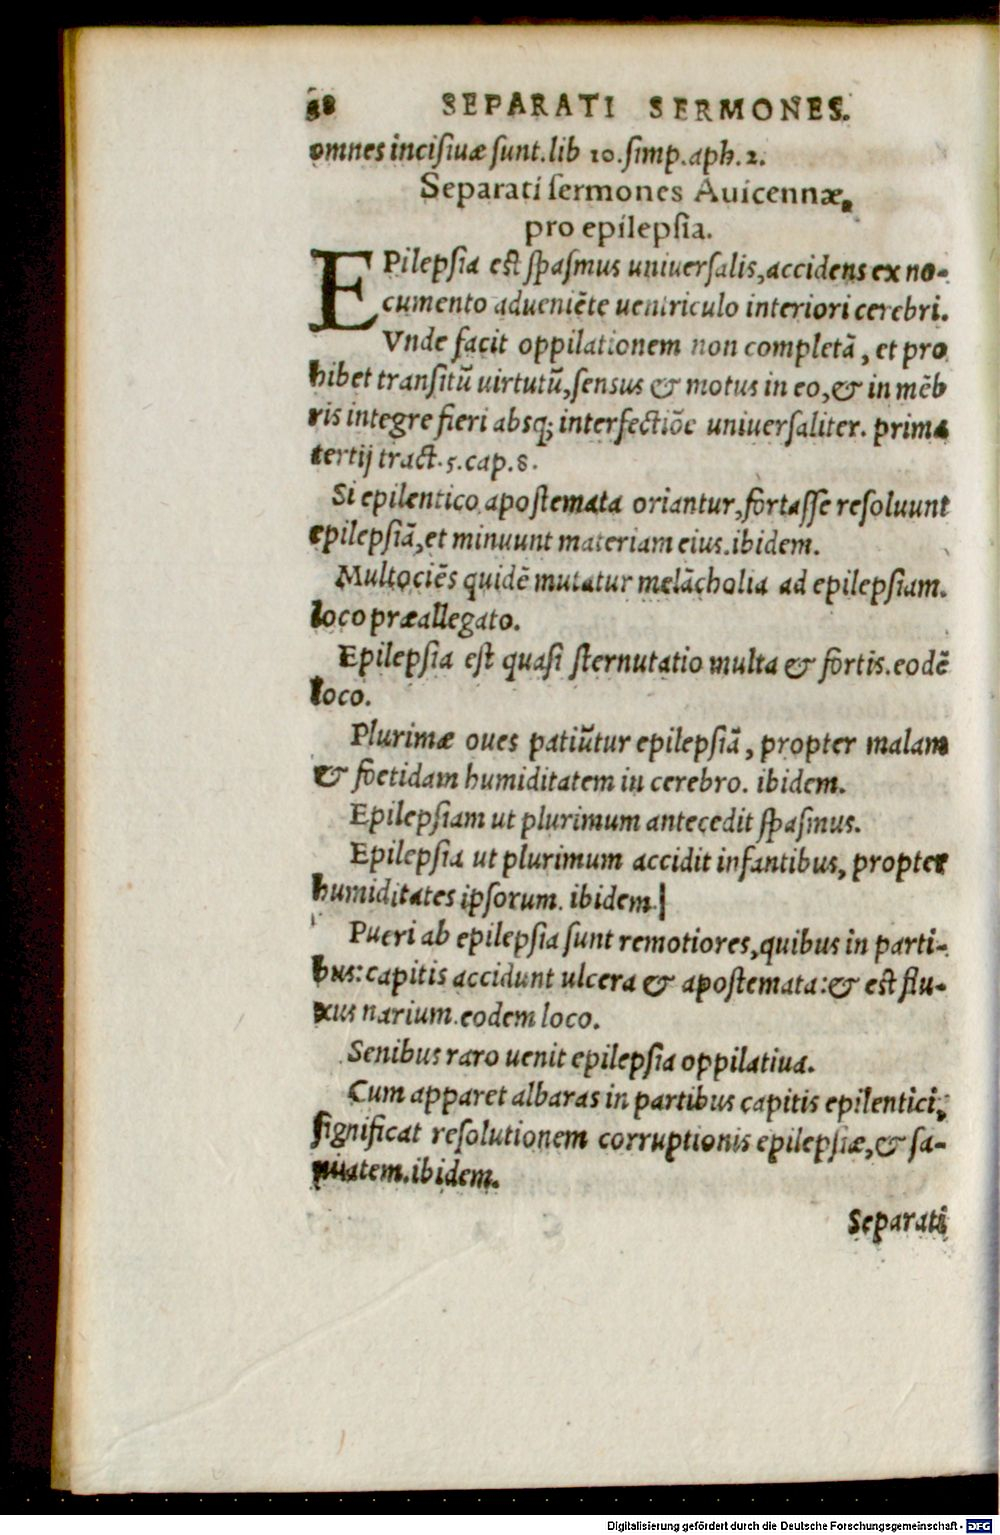 88 SEPARATI SERMONES.
omnes incisiuæ sunt.lib 10.simp.aph.2.
Separati sermones Auicennæ,
pro epilepsia.
EPilepsia est spasmus uniuersalis,accidens ex no-
cumento adueniẽte uentriculo interiori cerebri.
Vnde facit oppilationem non completã, et pro
hibet transitũ uirtutũ,sensus & motus in eo,& in mẽb
ris integre fieri absq; interfectiõe uniuersaliter. prima
tertij tract.5.cap.8.
Si epilentico apostemata oriantur,fortasse resoluunt
epilepsiã,et minuunt materiam eius.ibidem.
Multociẽs quidẽ mutatur melãcholia ad epilepsiam.
loco præallegato.
Epilepsia est quasi sternutatio multa & fortis.eodẽ
loco.
Plurimæ oues patiũtur epilepsiã, propter malam
& foetidam humiditatem in cerebro. ibidem.
Epilepsiam ut plurimum antecedit spasmus.
Epilepsia ut plurimum accidit infantibus, propter
humiditates ipsorum. ibidem.
Pueri ab epilepsia sunt remotiores,quibus in parti-
bus:capitis accidunt ulcera & apostemata:& est flu-
xus narium.eodem loco.
Senibus raro uenit epilepsia oppilatiua.
Cum apparet albaras in partibus capitis epilentici,
significat resolutionem corruptionis epilepsiæ,& sa-
nitatem.ibidem.
Separati
Digitalisierung gefördert durch die Deutsche Forschungsgemeinschaft - DFG